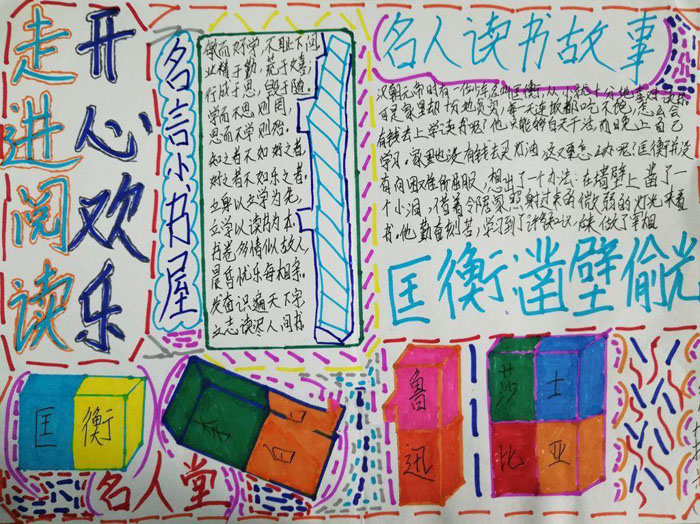 走进阅读
开心欢乐
名言小书屋
敏而好学，不耻下问
业精于勤，荒于嬉，
行成于思，毁于随。
学而不思则罔，
思而不学则殆。
知之者不如好之者，
好之者不如乐之者。
立身以立学为先，
立学以读书为本。
书卷多情似故人，
晨昏忧乐每相亲。
发奋识遍天下字
立志读尽人间书
名人读书故事
汉朝元帝时有一位
可是家里却十分贫穷，每一天连饭都吃不饱，怎么会
有钱去上学读书呢？他只能够白天干活，而晚上自己
学习，家里也没有钱去买灯油，这又要怎么办呢？匡衡并没
有向困难所屈服，想出了一个办法：在墙壁上凿了一
个小洞，借着令邻家照射过来的微弱的灯光来看
书。他勤奋刻苦，学习到了许多知识，后来做了宰相
匡衡凿壁偷光
匡衡
鲁迅
莎士比亚
名人堂